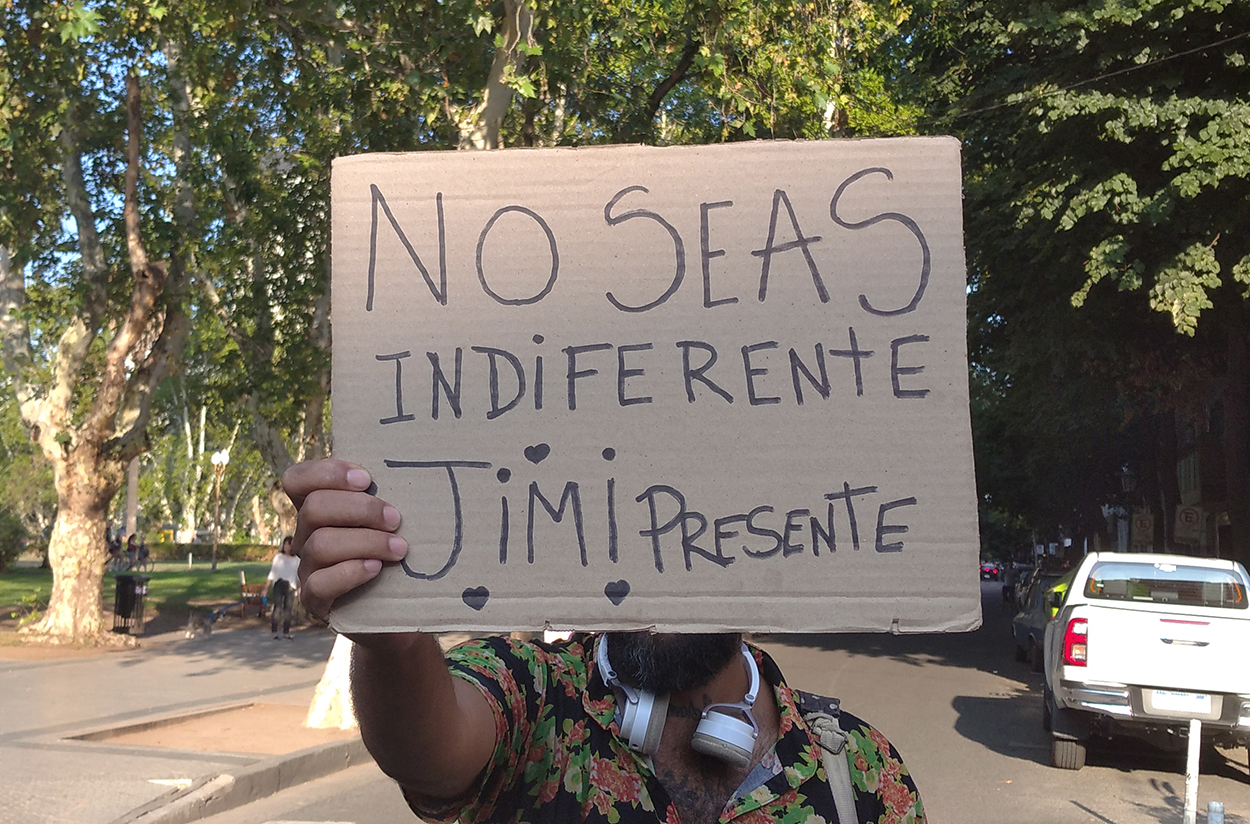 NO SEAS
INDiFERENTE
JiMi PRESENTE